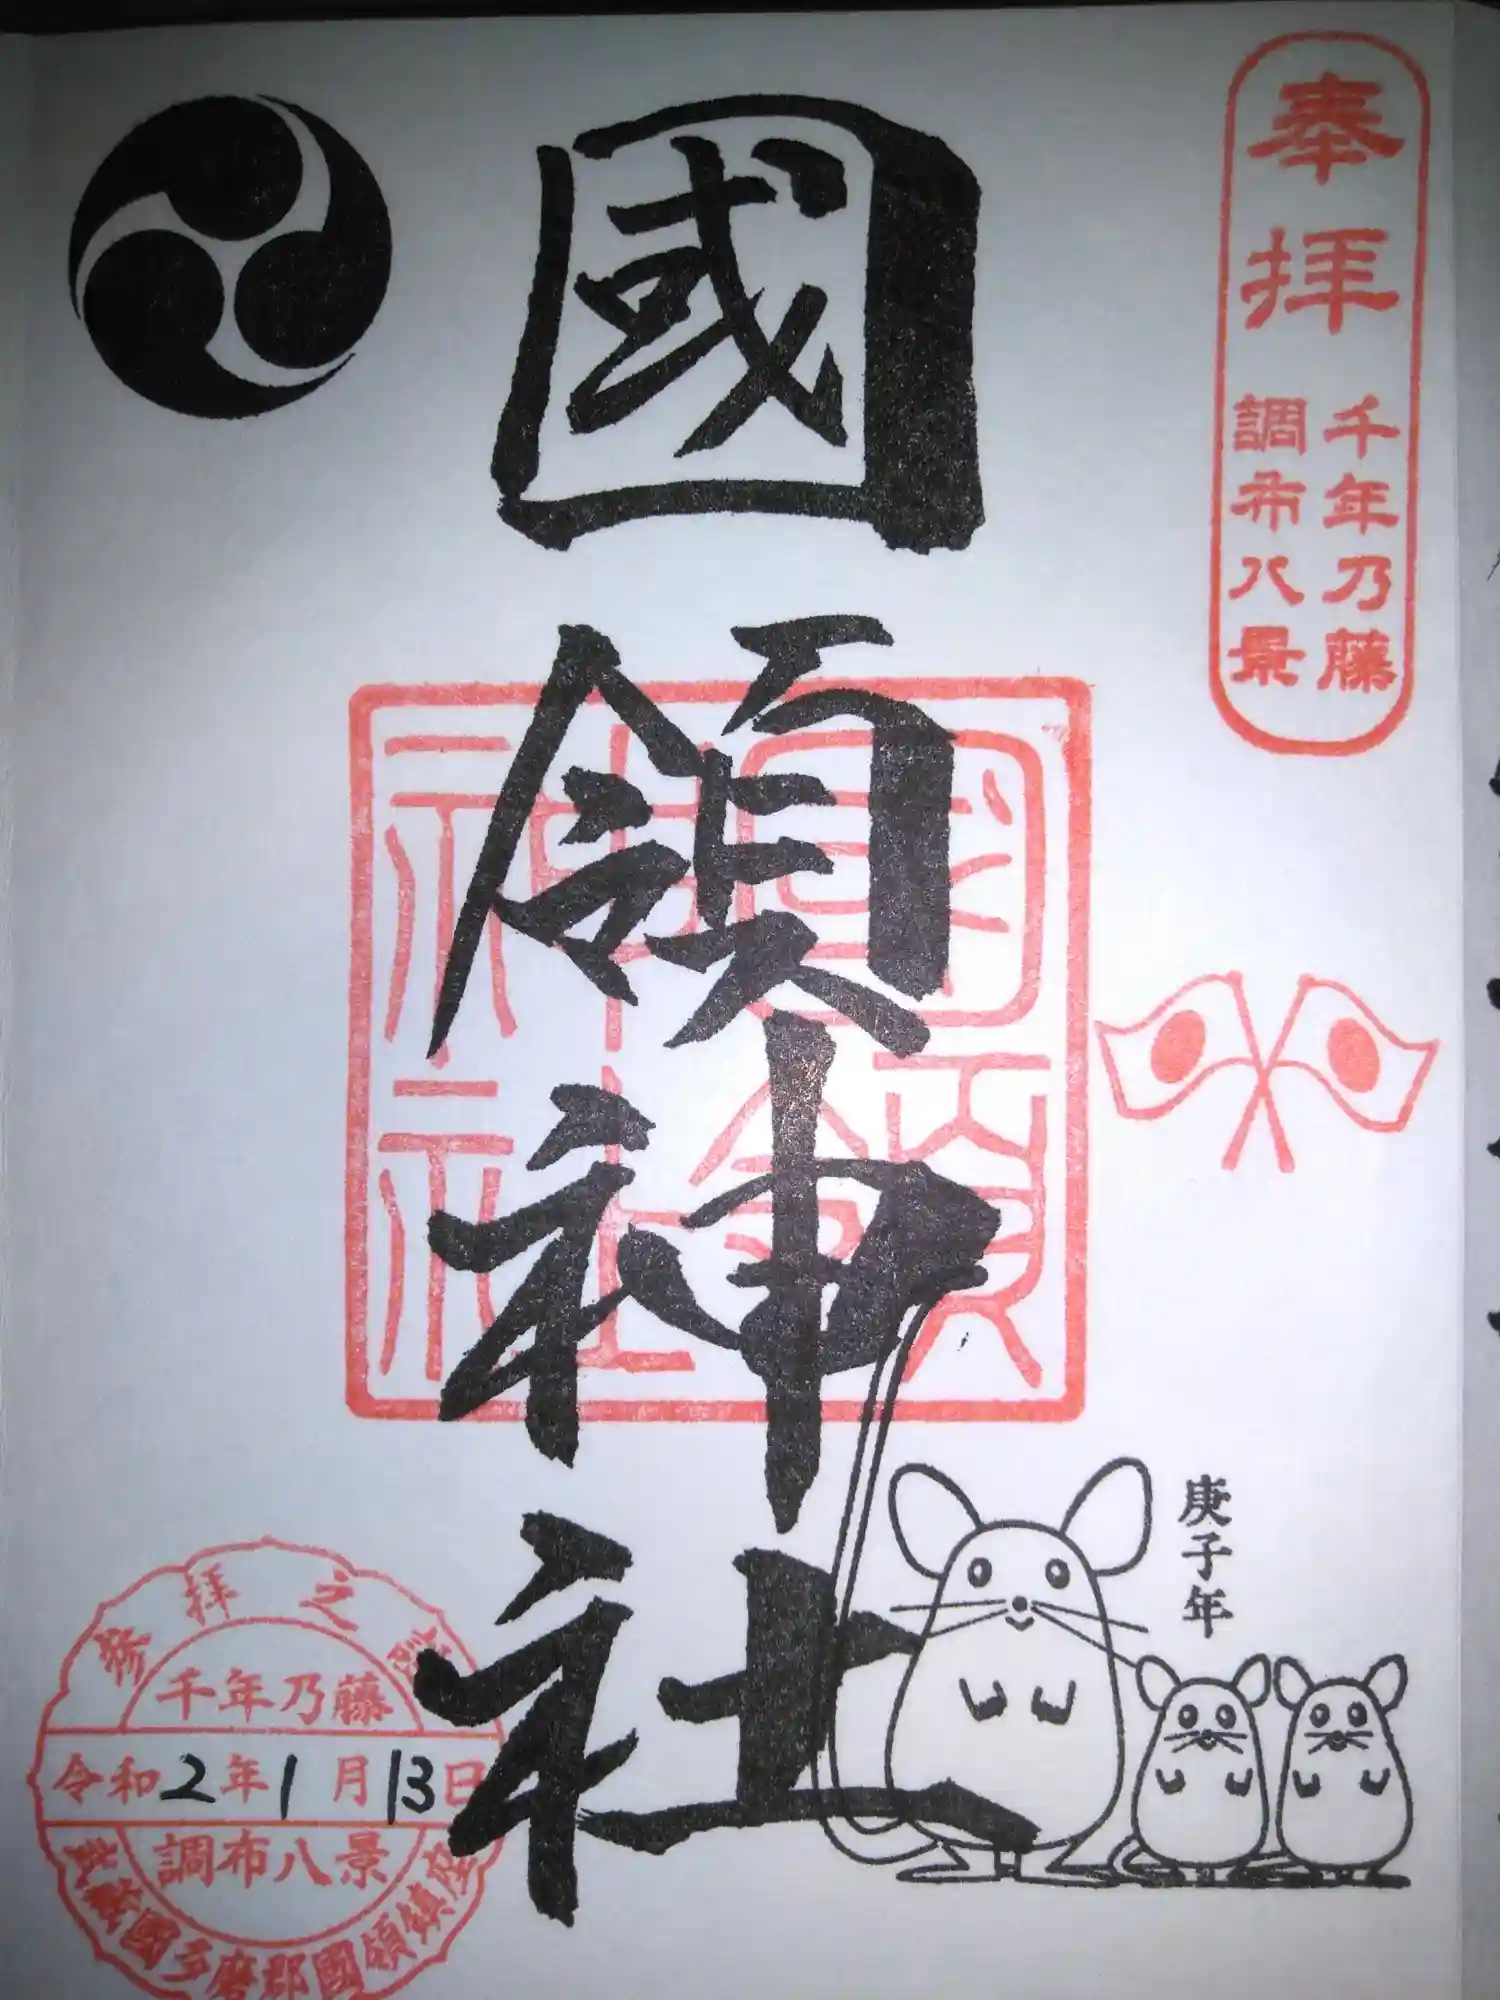 奉拝
千年乃藤
調布八景
國領神社
國領
神社
庚子年
参拝之
千年乃藤
令和2年1月13日
調布八景
武蔵國多磨郡國領鎮座